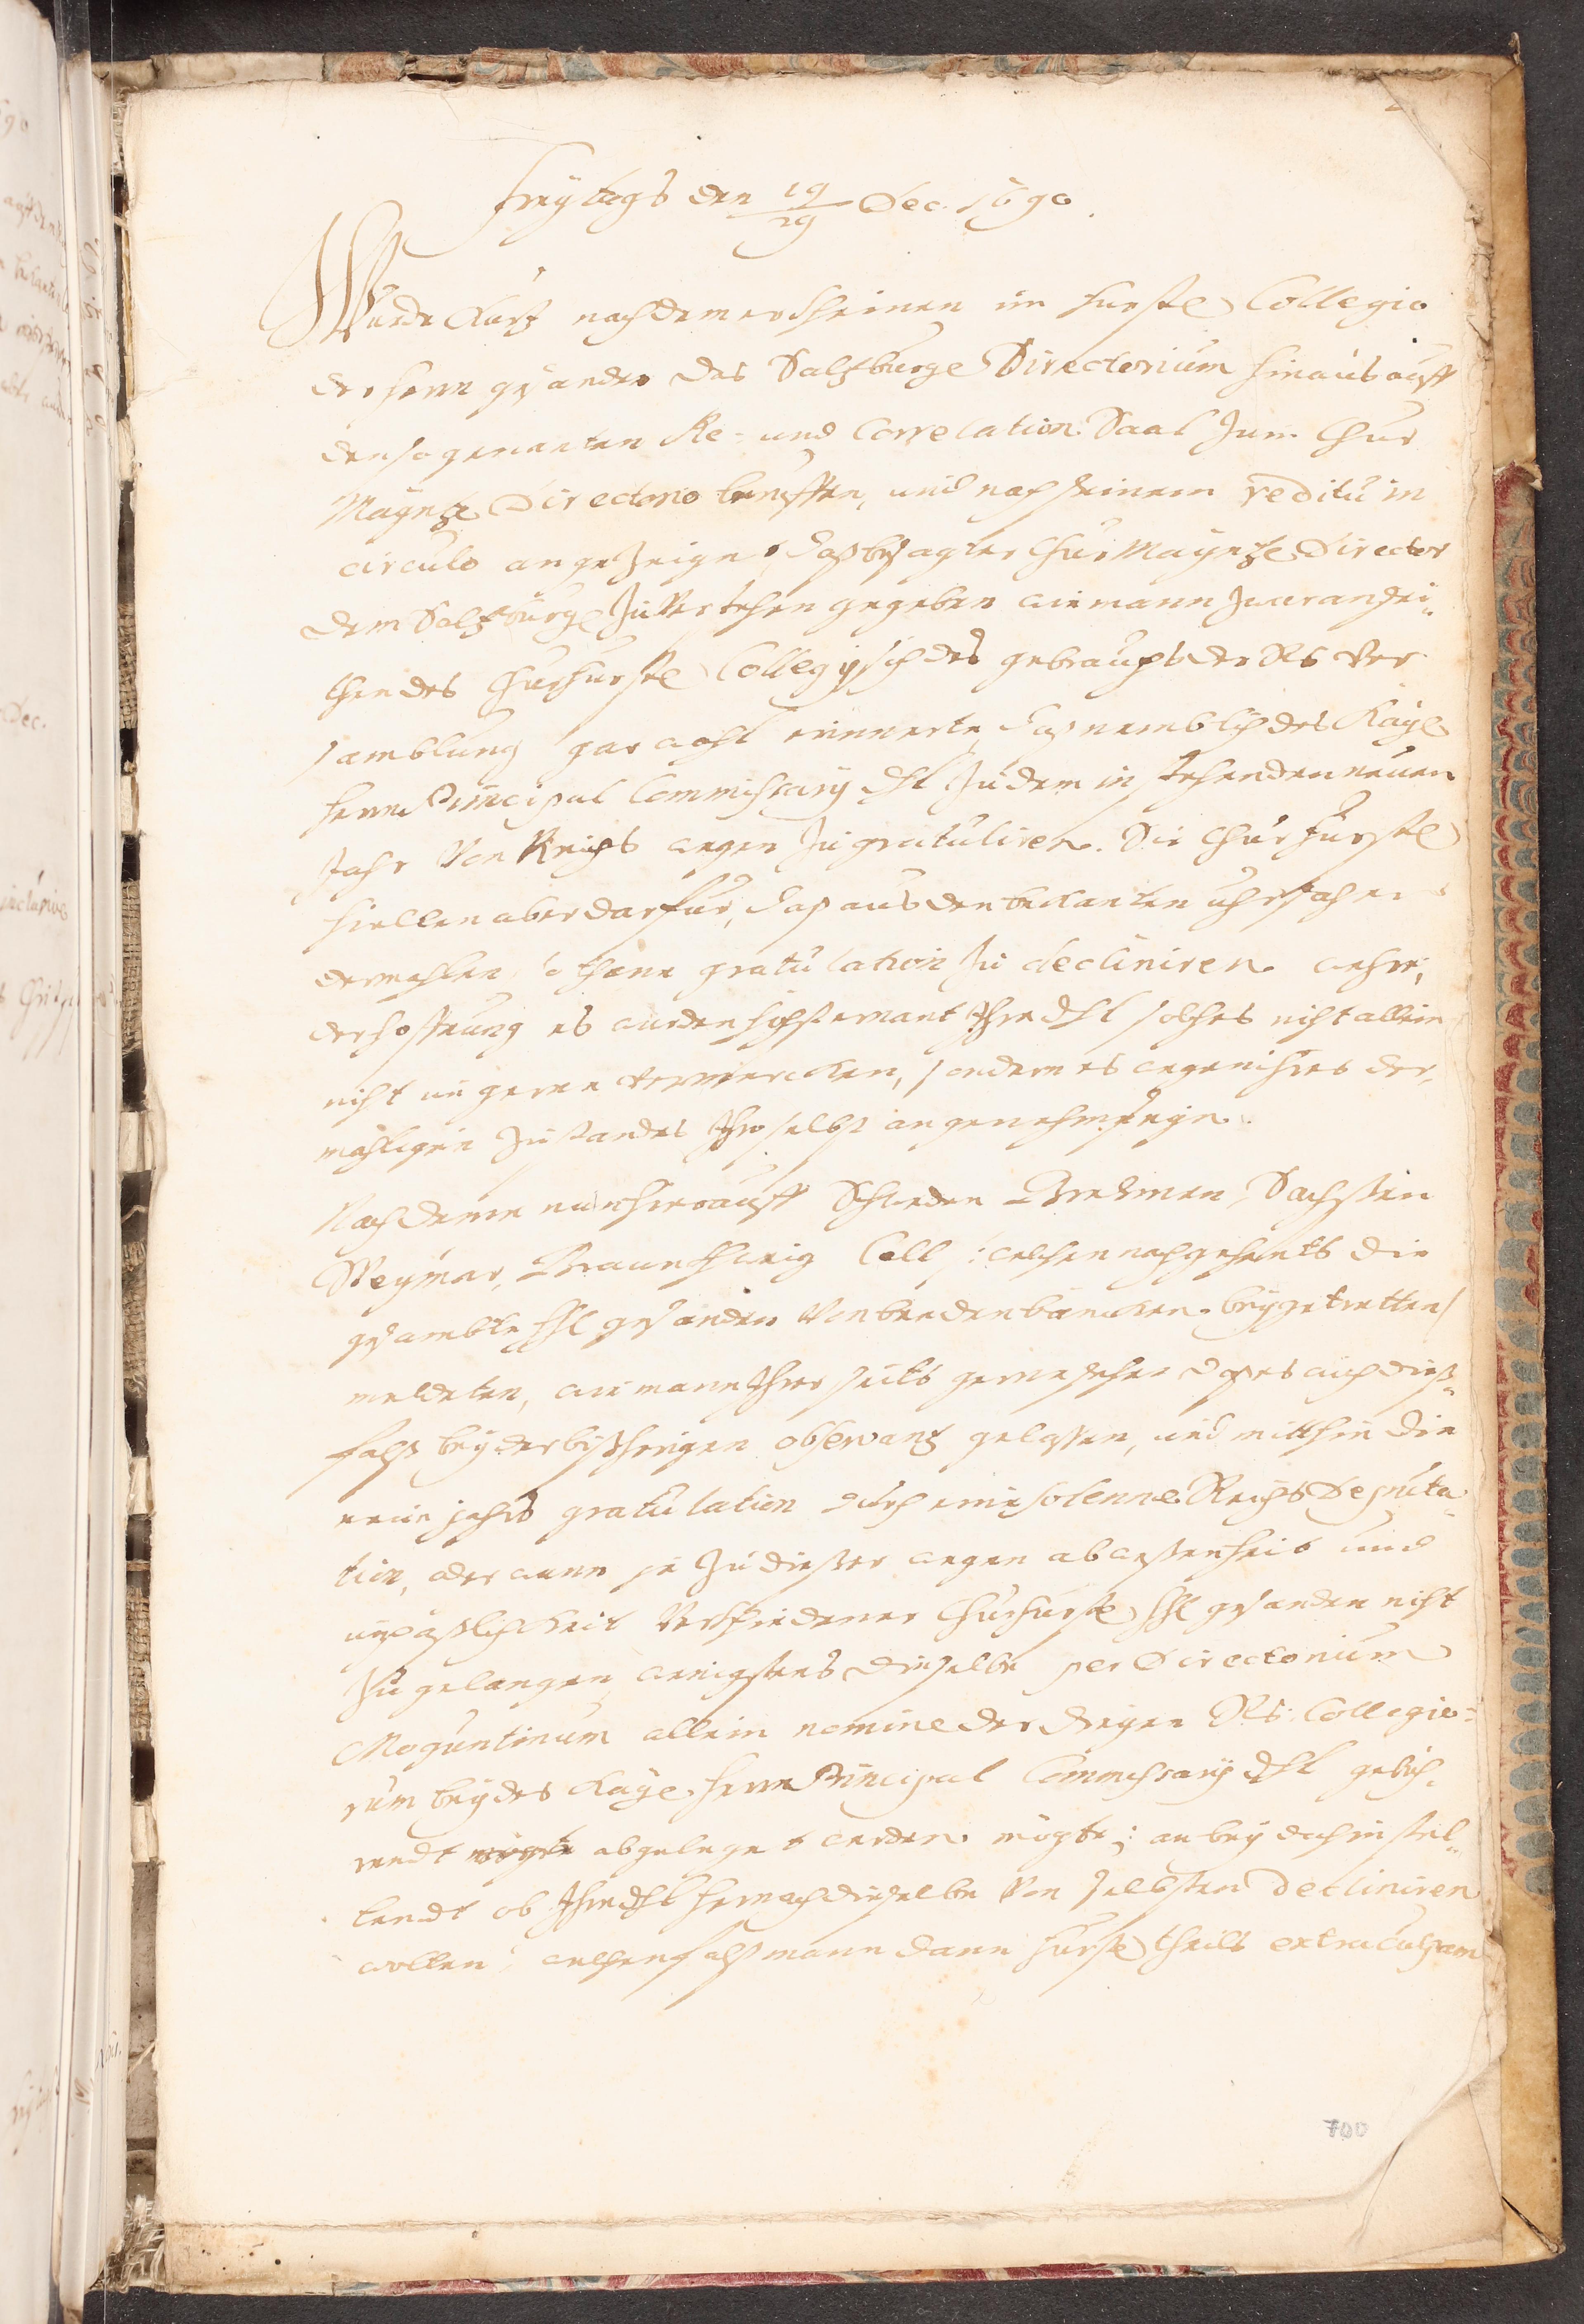 Freytags den 19/29 Dec. 1690.
Wurde kurtz nach dem erscheinen im Fürstl Collegio
der herrn gesanden das Saltzburgl Directorium hinaus auff
den so genanten Re- und Correlation Saal zum Chur
Mayntzl Directorio beruffen, und nach seinem reditu in
circulo angezeiget, daß besagter ChurMayntzl Director
dem Saltzburgl zu verstehen gegeben wie mann zwar an sei-
then des Churfürstl Collegij sich des gebrauchs der Rs Ver-
samblung gar wohl erinnerte, daß nemblich des Kayl
herrn Principal Commissarij dhl zu dem instehenden neuen
Jahr von Reichs wegen zu gratuliren. Die Churfürstl
hielten aber darfür, daß aus den bekanten uhrsachen
dermahlen sothane gratulation zu decliniren wehre,
der hoffnung es wurden höchsternant Ihre dhl solches nicht allein
nicht ungerne vermercken, sondern es wegen ihres der-
mahligen zustandes Ihro selbst angenehm seyn.
Nachdeme nun hierauff Schweden Brehmen, Sachssen
Weymar, Braunschweig Cell /: welchen nachgehents die
gesambte fhl gesanden von beeden bäncken beygetretten /
meldeten, wie mann Ihres seits gerne sehe daß es auch dieß-
falß bey der bißherigen observantz gelassen, und mitthin die
neue jahrs gratulation durch eine solenne Reichs Deputa-
tion, oder wann je zu dießer wegen abwessenheit und
unpäßlichkeit verschiedener Churfürstl hhl gesanden nicht
zu gelangen, wenigstens dieselbe per Directorium
Moguntinum allein nomine der dreyen Rs. Collegio-
rum bey des Kayl. herrn Principal Commissarij dhl gebüh-
rendt abgeleget werden mögte; anbey dahin stel-
lendt ob Ihre dhl hernach dieselbe von selbsten decliniren
wolten, welchenfalß mann dann Fürstl theils extra culpam
700